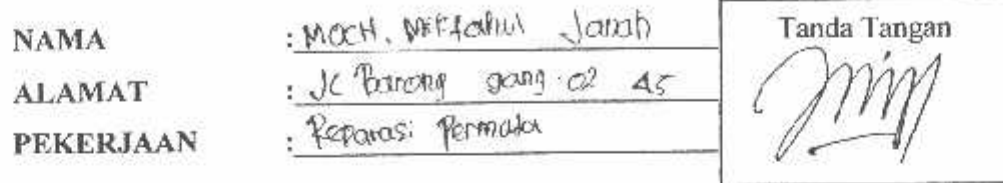 NAMA : MOCH. Miftahul Janah
ALAMAT : JL Barong gang 02 45
PEKERJAAN : Reparasi Permata
Tanda Tangan